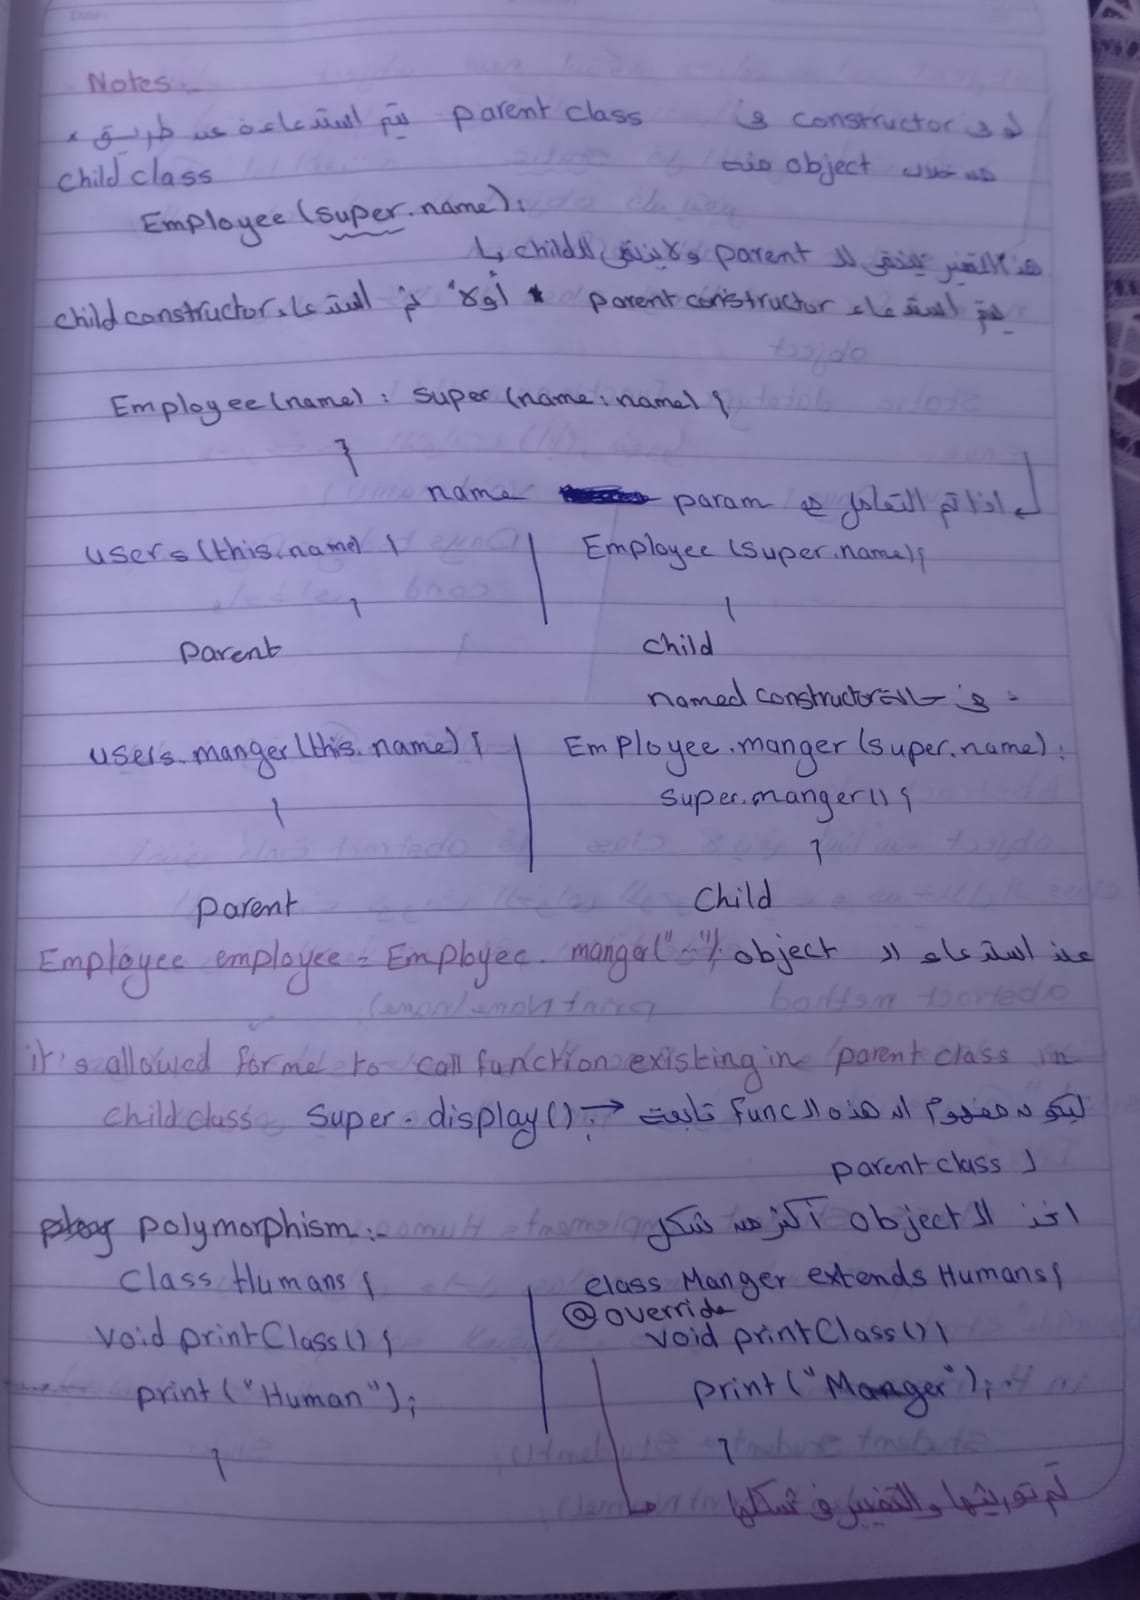 Notes:-
لو في constructor في parent class يتم استدعاءة عن طريق
child class من خلال object منه
Employee (super.name);
هذا التغير ينتمى لل parent ولا ينتمى لل child
يتم استدعاء parent constructor أولا ثم استدعاء child constructor
Employee (name) : super (name: name) {
}
اذا تم التعامل مع param name
users (this.name) {
Employee (super.name) {
}
}
Parent
child
في حالة named constructor
users.manger (this.name) {
Employee.manger (super.name) :
super.manger () {
}
}
parent
child
عند استدعاء ال object Employee employee = Employee.manger("~");
it's allowed for me to call function existing in parent class in
child class super.display(); → ليكون مفهوم ان هذه ال func تابعة
ل parent class
polymorphism:- اخذ ال object أكثر من شكل
class Humans {
class Manger extends Humans {
@override
void printClass () {
void printClass () {
print ("Human");
print ("Manger");
}
}
تم توريثها والتغيير في شكلها